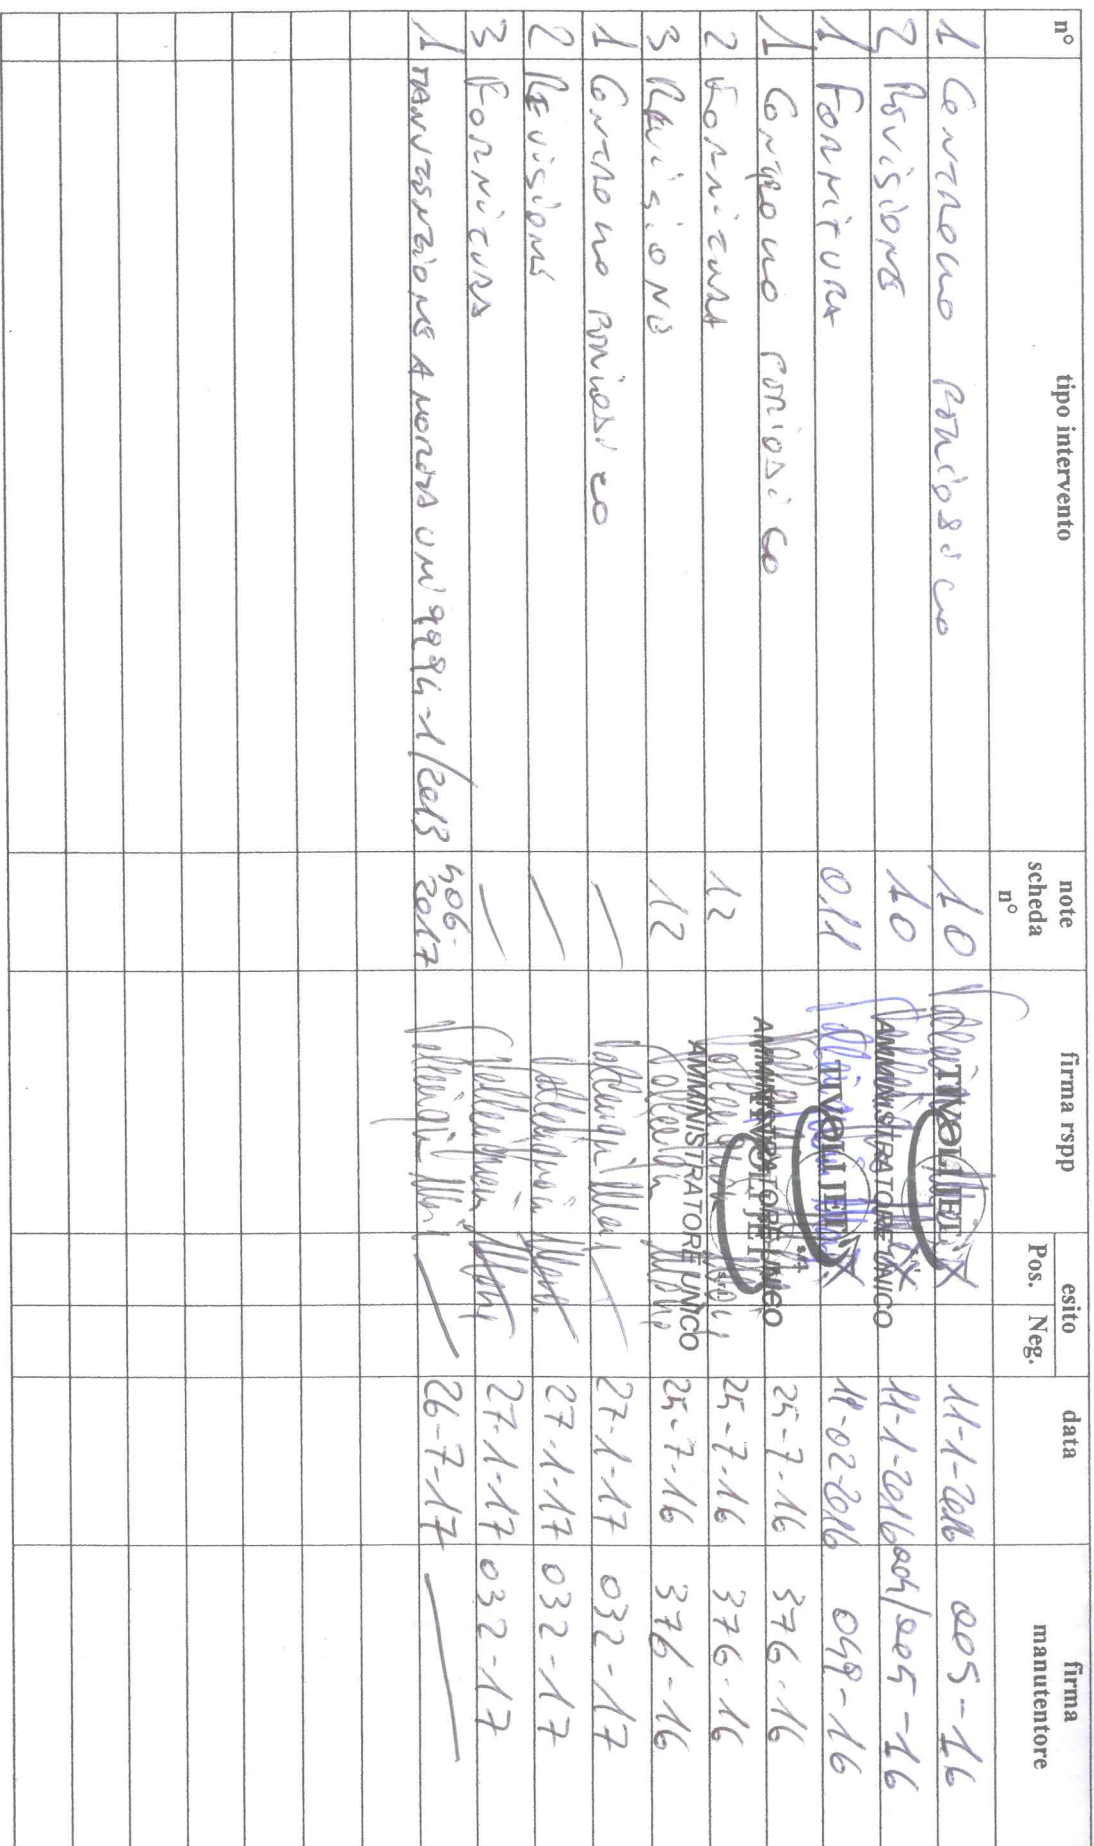 n° tipo intervento note scheda n° firma rspp esito Pos. Neg. data firma manutentore
1 CONTROLLO PERIODICO 10 TIVOLI JET X 11-1-2016 005-16
2 REVISIONE 10 AMMINISTRATORE UNICO X 11-1-2016 004/005-16
1 FORNITURA 011 TIVOLI JET X 18-02-2016 049-16
1 CONTROLLO PERIODICO AMMINISTRATORE UNICO 25-7-16 376-16
2 FORNITURA 12 25-7-16 376-16
3 REVISIONE 12 AMMINISTRATORE UNICO 25-7-16 376-16
1 CONTROLLO PERIODICO 27-1-17 032-17
2 REVISIONE 27-1-17 032-17
3 FORNITURA 27-1-17 032-17
1 MANUTENZIONE A NORMA UNI 9994-1/2013 406-2017 26-7-17